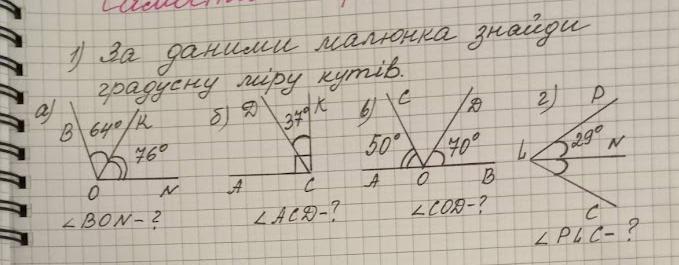 1) За даними малюнка знайди
градусну міру кутів.
а) B 64° K 76° O N
∠BON-?
б) D 37° K A C
∠ACD-?
в) C D 50° 70° A O B
∠COD-?
г) P 29° N L C
∠PLC-?